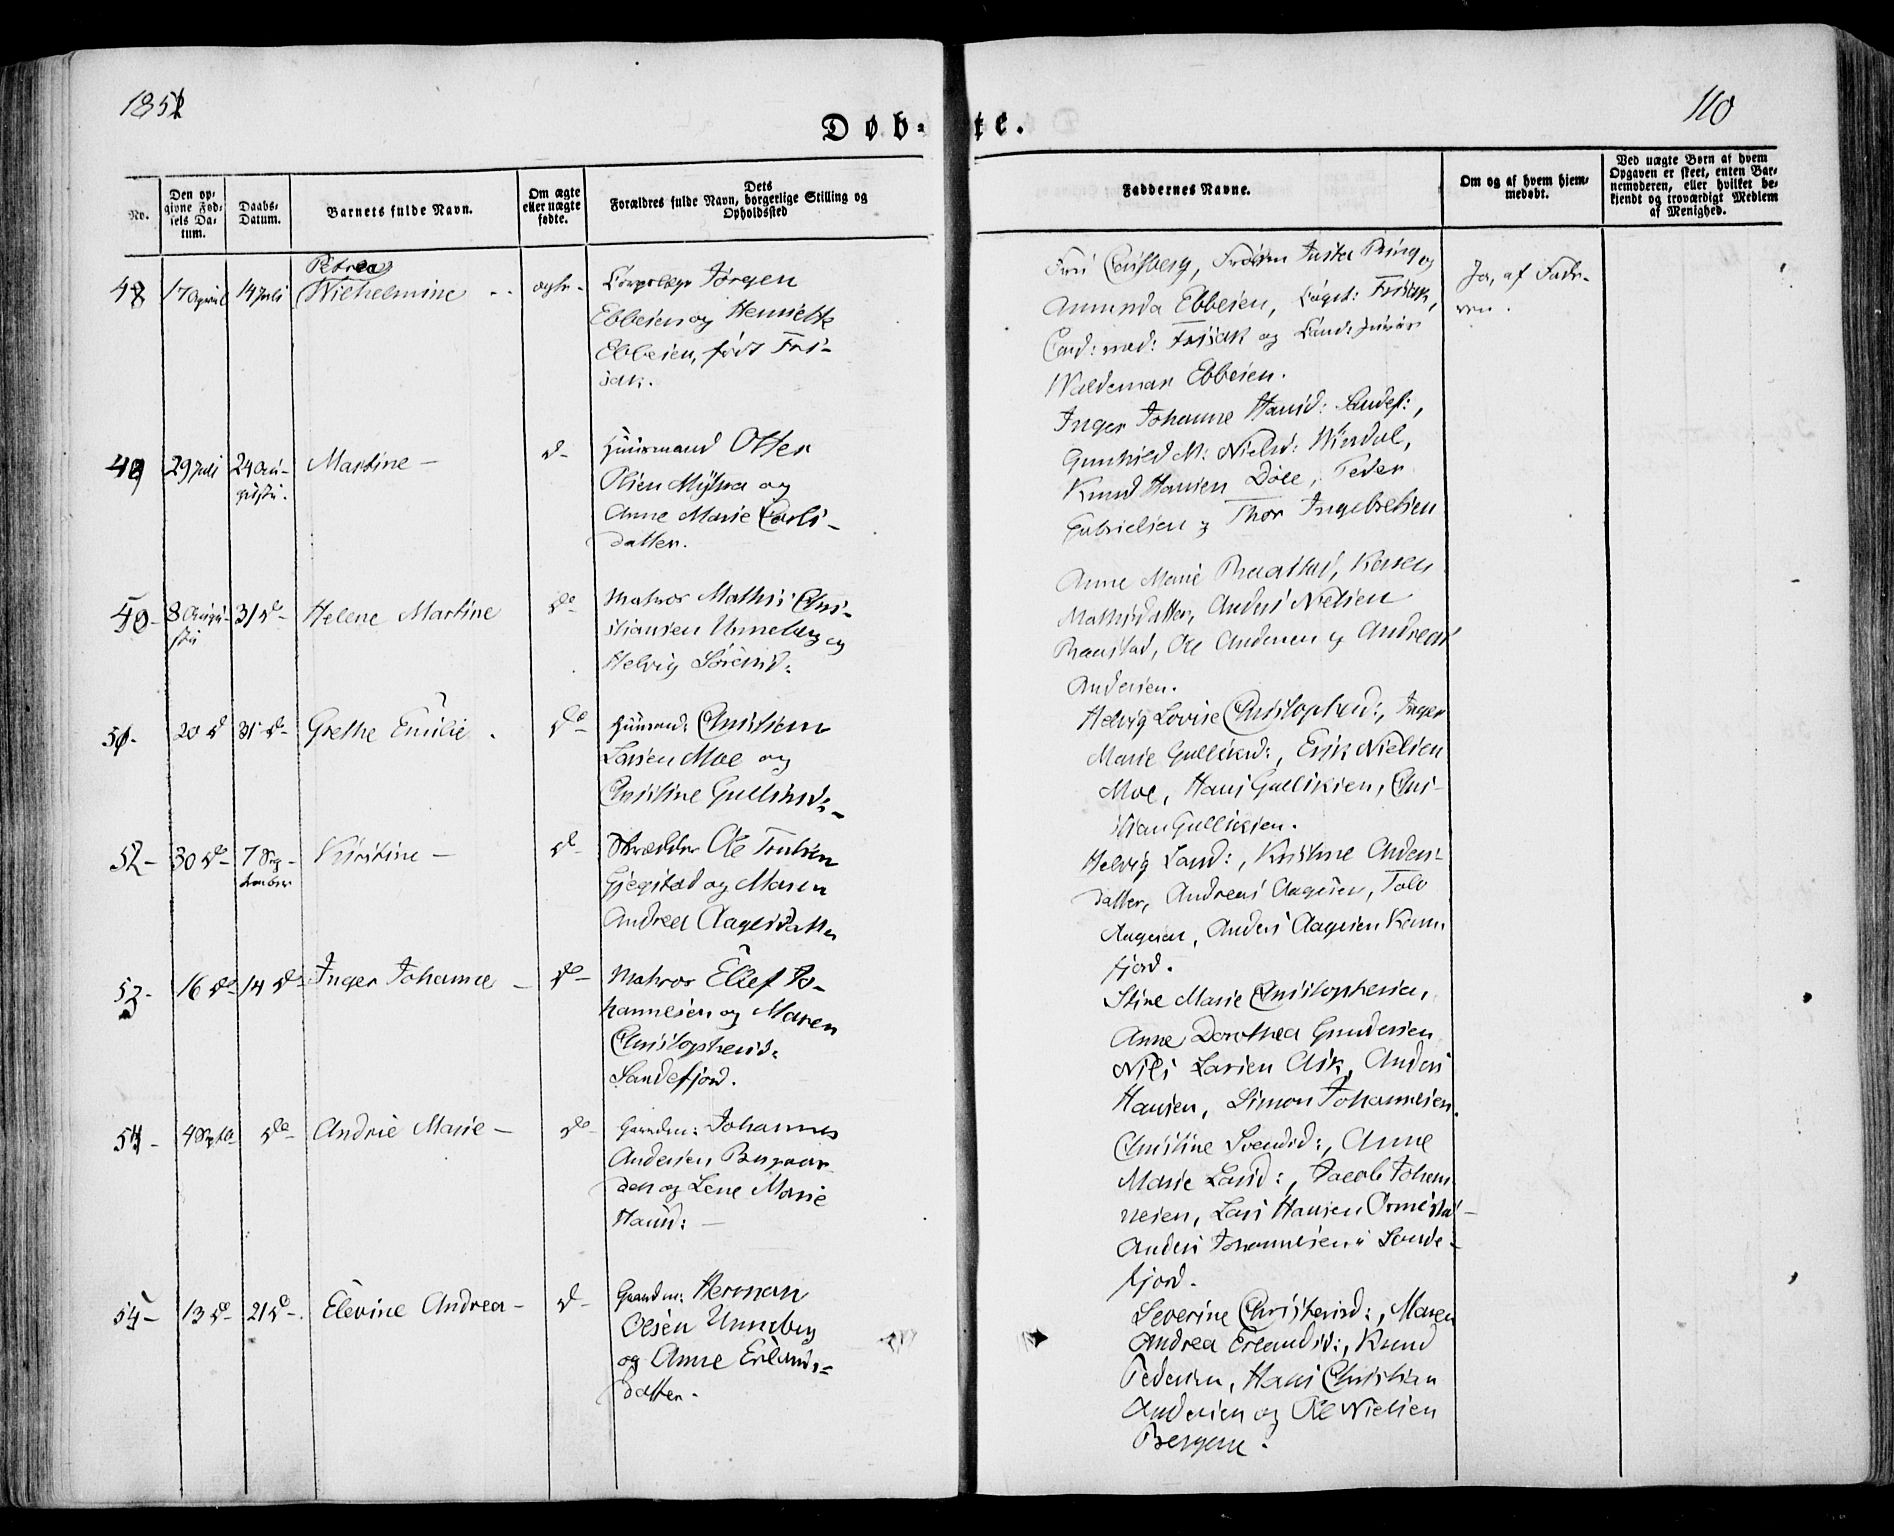 1851
110
Døb-
te.
No.
Den op-
givne Fød-
sels Da-
tum.
Daabs-
Datum.
Barnets fulde Navn.
Om ægte
eller uægte
fødte.
Dets
Forældres fulde Navn, borgerlige Stilling og
Opholdssted
Faddernes Navne.
Om og af hvem hjem-
medøbt.
Ved uægte Børn af hvem
Opgaven er skeet, enten Bar-
nemoderen, eller hvilket be-
kjendt og troværdigt Medlem
af Menighed.
48
17 April
14 Juli
Petrea
Wilhelmine
ægte
Jørgen
Ebbesen og Henriette
Ebbesen, født Fri-
sak.
Fru Carlsberg, Frøken Ring og
Amunda Ebbesen, Frisak,
Cand: med: Frisak og
Waldemar Ebbesen.
Ja, af Fade-
ren.
49
29 Juli
24 Au-
gusti.
Martine -
d-
Huusmand Otter
Olsen Myhra og
Anne Marie Carls-
datter.
Inger Johanne Hansd: Sandef:,
Gunhild M: Nielsd: Virdal,
Knud Hansen Døle, Peder
Gabrielsen og Thor Ingebretsen
50-
8 Augu-
sti
31 do-
Helene Martine
do
Matros Mathis Chri-
stiansen Unneberg og
Helvig Sørensd:
Anne Marie Raastad, Karen
Mathisdatter, Anders Nielsen
Raastad, Ole Andersen og Andreas
Andersen.
51-
20 d
31 do-
Grethe Emilie.
do
Huusmd: Christian
Larsen Moe og
Christine Gulliksd:-
Helvig Lovise Christophersd:, Inger
Marie Gulliksd:, Erik Nielsen
Moe, Hans Galliksen, Chri-
stian Gulliksen.
52-
30 do-
7 Sep-
tember
Kirstine -
d-
Skrædder Ole
Gjegstad og Maren
Andrea Aagesdatter
Helvig Larsd:, Kristine Anders-
datter, Andreas Aagesen, Tolv
Aagesen, Anders Aagesen Kam
fjord.
53-
16 do
14 do
Inger Johanne -
do-
Matros Ellef Jo-
hannesen og Maren
Christophersd:
Sandefjord.
Stine Marie Christophersen,
Anne Dorothea Gundersen
Nils Larsen Ask, Anders
Hansen, Simon Johannesen.
54-
4 Septbr
do-
Andrie Marie -
do-
Gaardm: Johannes
Andersen Bugaar
den og Lene Marie
Hansd: -
Christine Svendsd:, Anne
Marie Larsd:, Jacob Johan
nesen, Lars Hansen Ormestad-
Anders Johannesen i Sande-
fjord.
55-
13 do-
21 do-
Elevine Andrea -
d-
Gaardm: Herman
Olsen Unneberg
og Anne Erlands-
datter.
Severine Christensd:, Maren
Andrea Erlandsd:, Knud
Pedersen, Hans Christian
Andersen og Ole Nielsen
Bergene.